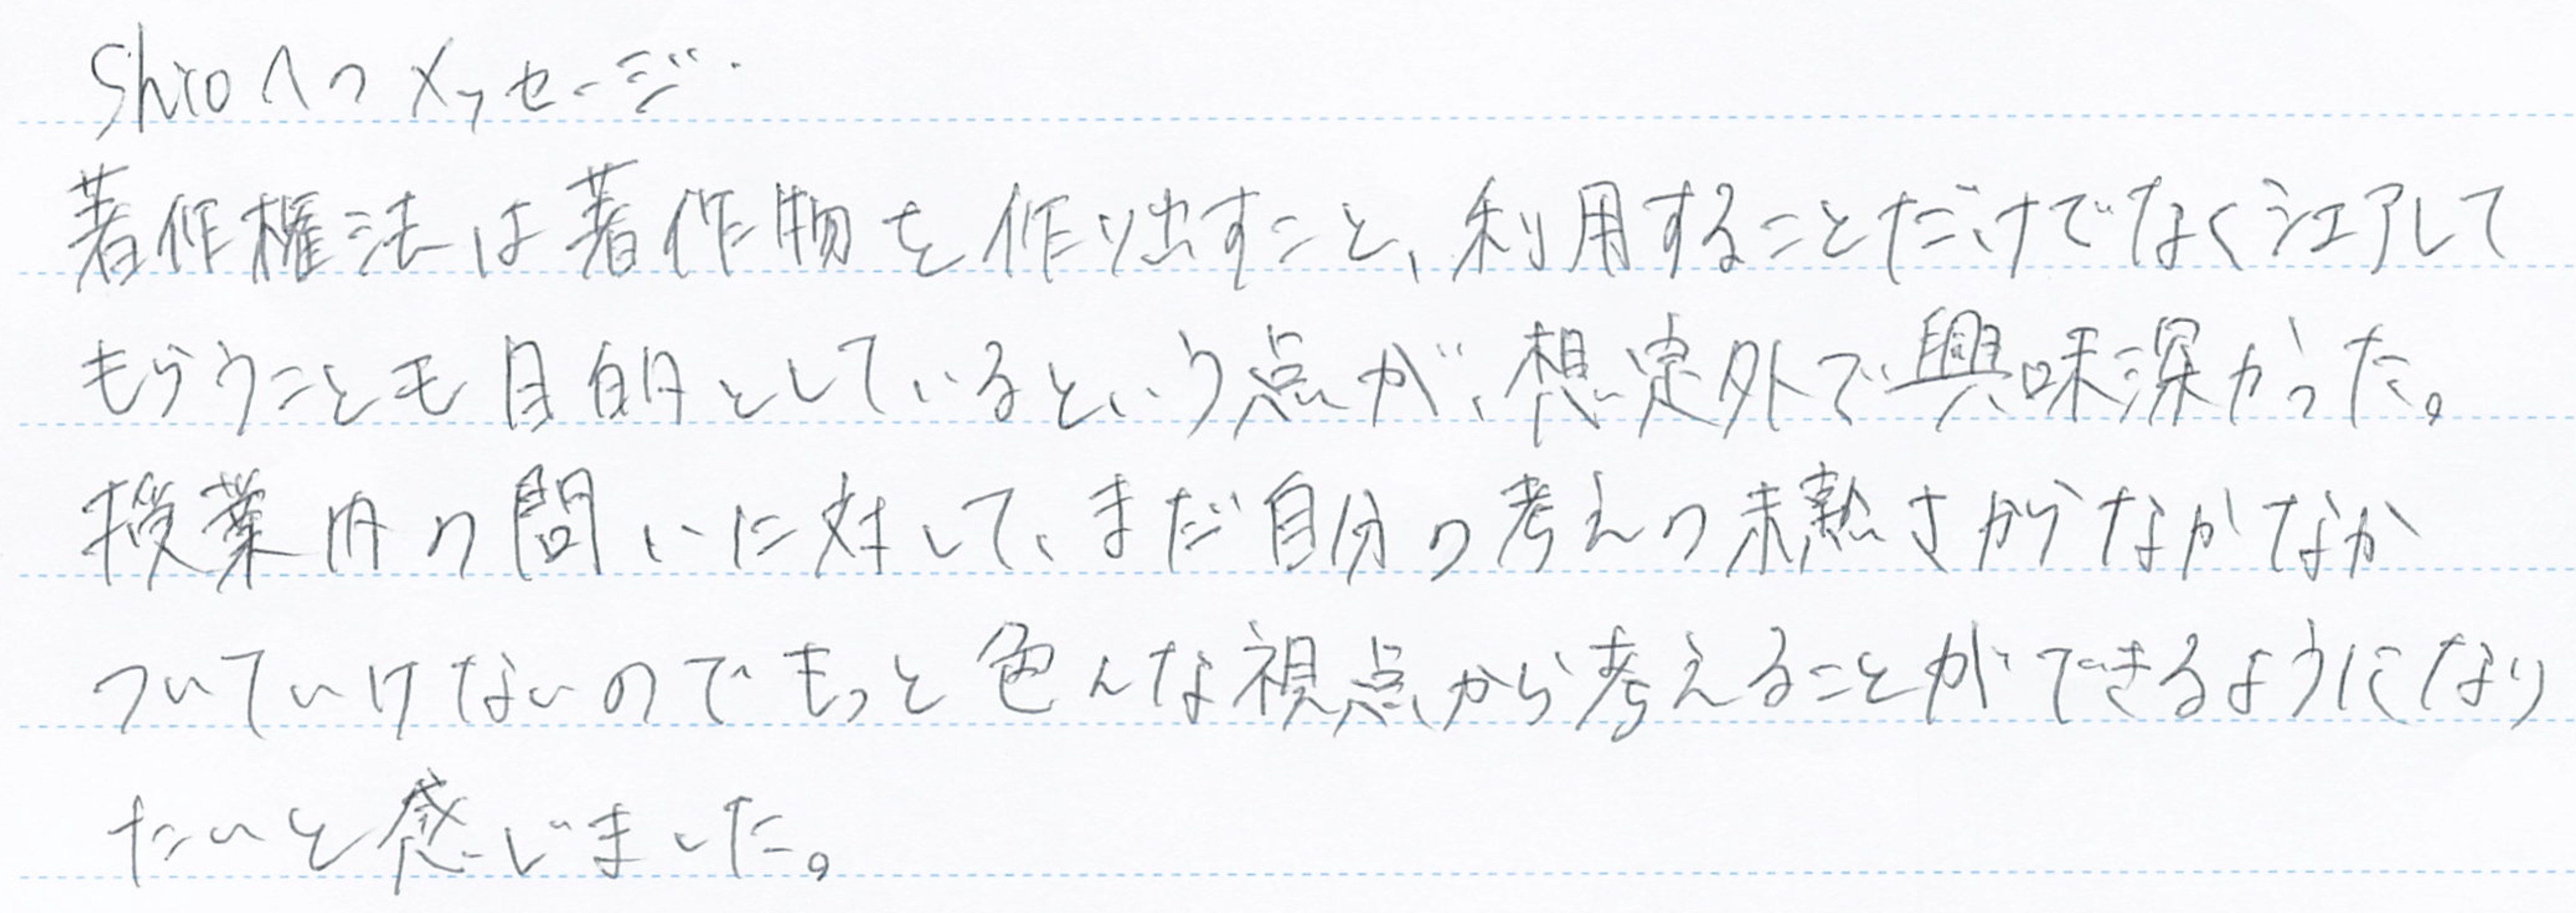 Shioへのメッセージ.
著作権法は著作物を作り出すこと、利用することだけでなくシェアして
もらうことも目的としているという点が、想定外で興味深かった。
授業内の問いに対して、まだ自分の考えの未熟さからなかなか
ついていけないのでもっと色んな視点から考えることができるようになり
たいと感じました。